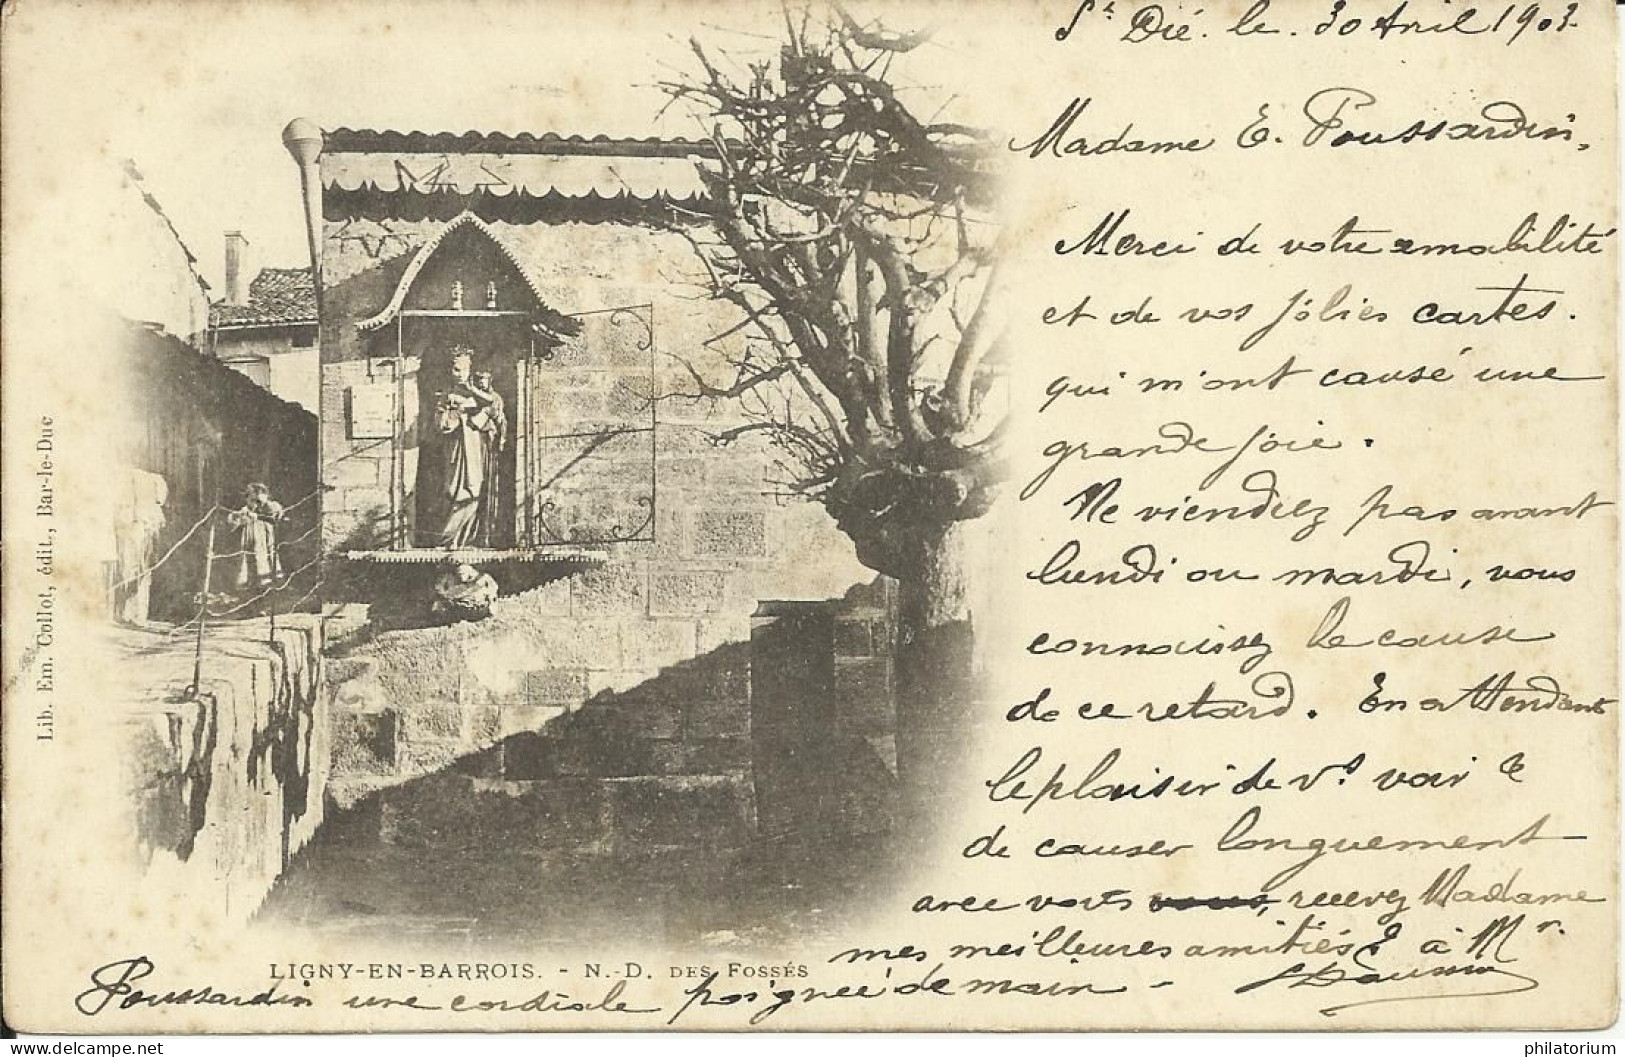 St Dié. le. 30 Avril 1903.
Madame E. Poussardin,
Merci de votre amabilité
et de vos jolies cartes.
qui m'ont causé une
grande joie.
Ne viendrez pas avant
lundi ou mardi, vous
connaissez la cause
de ce retard. En attendant
le plaisir de vs voir &
de causer longuement
avec vous, recevez Madame
mes meilleures amitiés & à Mr.
Poussardin une cordiale poignée de main -
LIGNY-EN-BARROIS. - N.-D. DES FOSSÉS
Lib. Em. Collot, édit., Bar-le-Duc
delcampe.net
philatorium